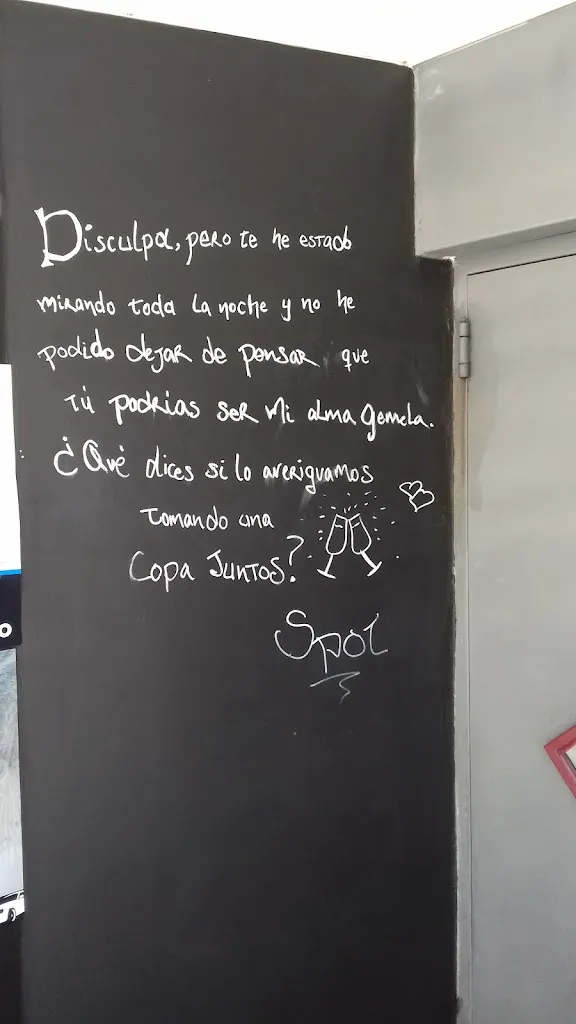 Disculpa, pero te he estado
mirando toda la noche y no he
podido dejar de pensar que
tú podrías ser mi alma gemela.
¿Qué dices si lo averiguamos
tomando una
Copa Juntos?
Spot
O